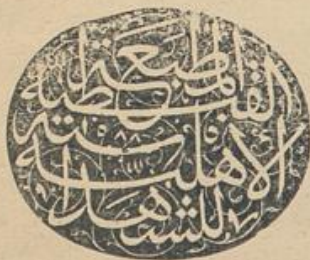 المطبعة
القبطية
الاهلية سنة
للشهدا